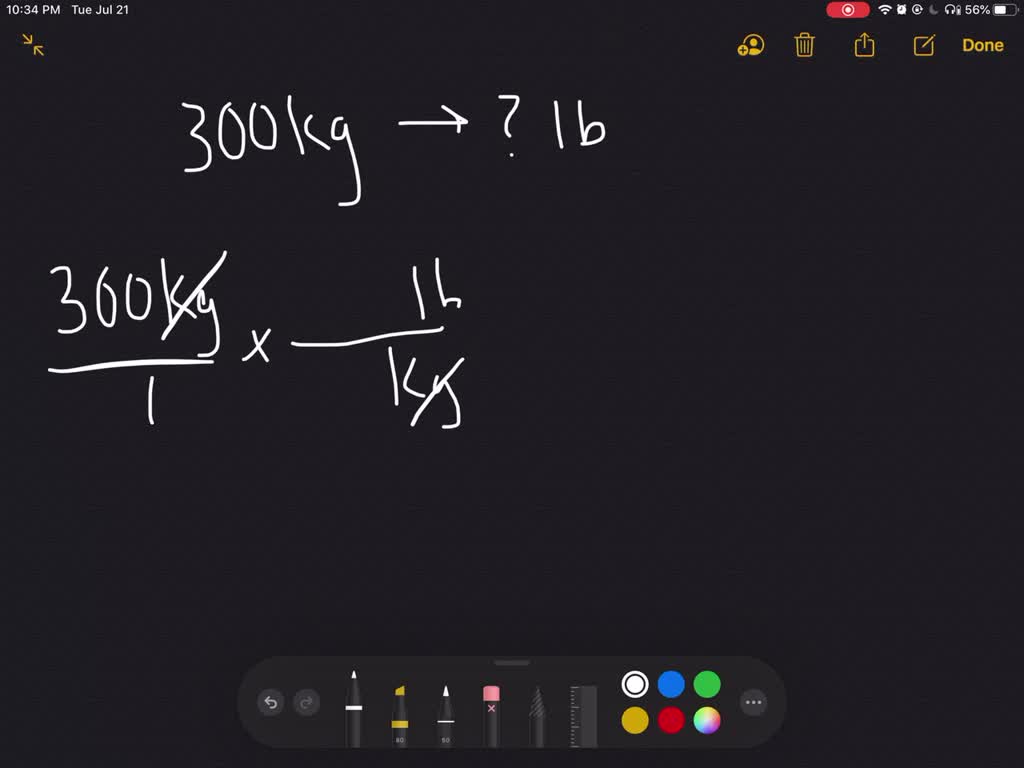 10:34 PM Tue Jul 21 56%
Done
300kg → ? lb
300kg lb
x
1 kg
80 50